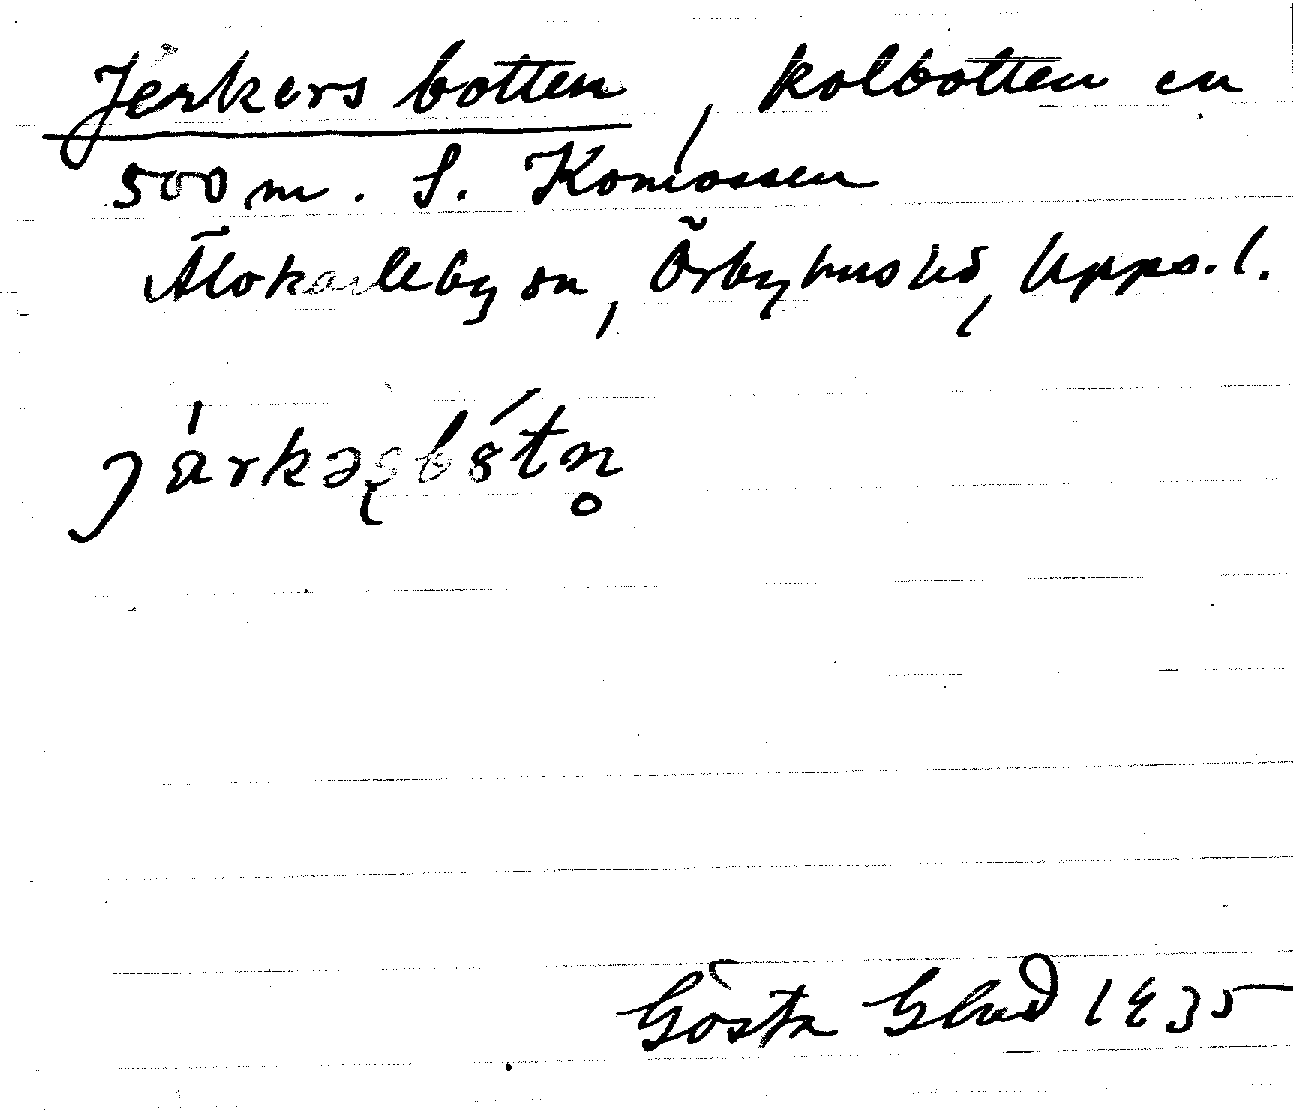 Jerkers botten, kolbotten en
500 m. S. Komossen
Älvkarleby sn, Örbyhus hd, Upps. l.
järkəʂbótn̥
Gösta Glad 1935